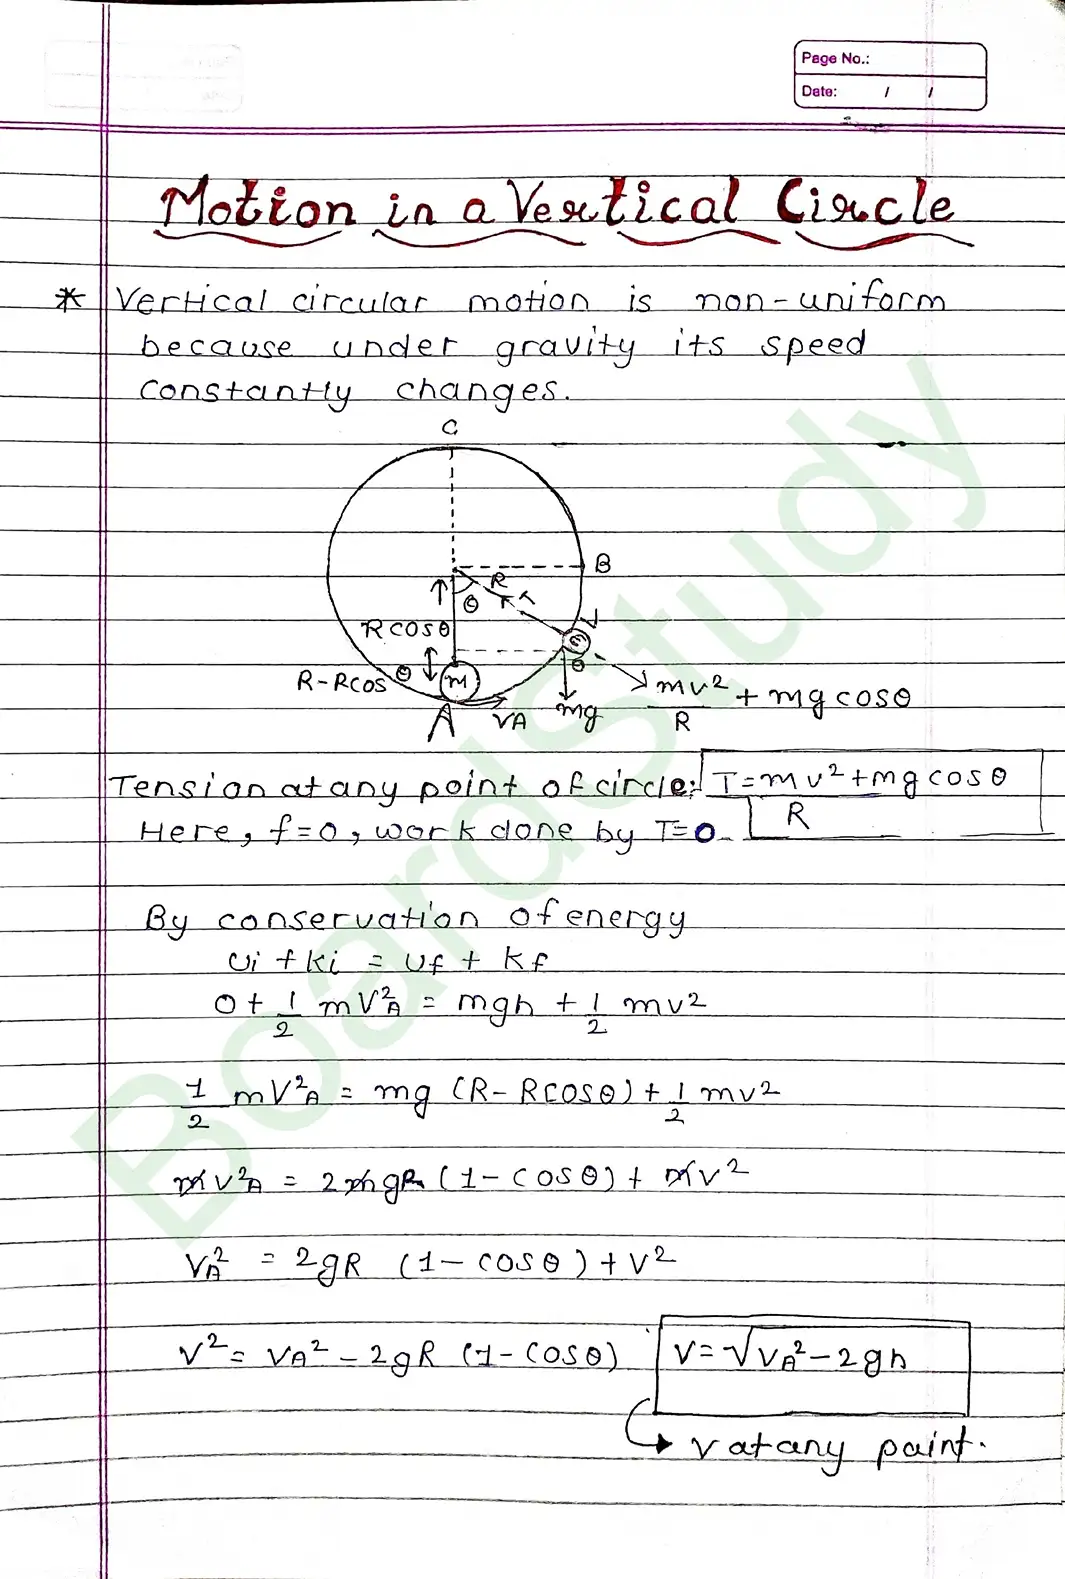 Page No.:
Date: / /
Motion in a Vertical Circle
* Vertical circular motion is non-uniform
because under gravity its speed
constantly changes.
C
B
R
T
θ
V
R cosθ
m
θ
R-Rcosθ
m
A
VA
mg
mv²/R + mg cosθ
Tension at any point of circle:- T = mv²/R + mg cosθ
Here, f=0, work done by T=0.
By conservation of energy
Ui + ki = Uf + Kf
0 + 1/2 mV²A = mgh + 1/2 mv²
1/2 mV²A = mg (R-Rcosθ) + 1/2 mv²
mv²A = 2mgR (1-cosθ) + mv²
VA² = 2gR (1-cosθ) + v²
v² = vA² - 2gR (1-cosθ) v = √vA² - 2gh
v at any point.
BoardStudy